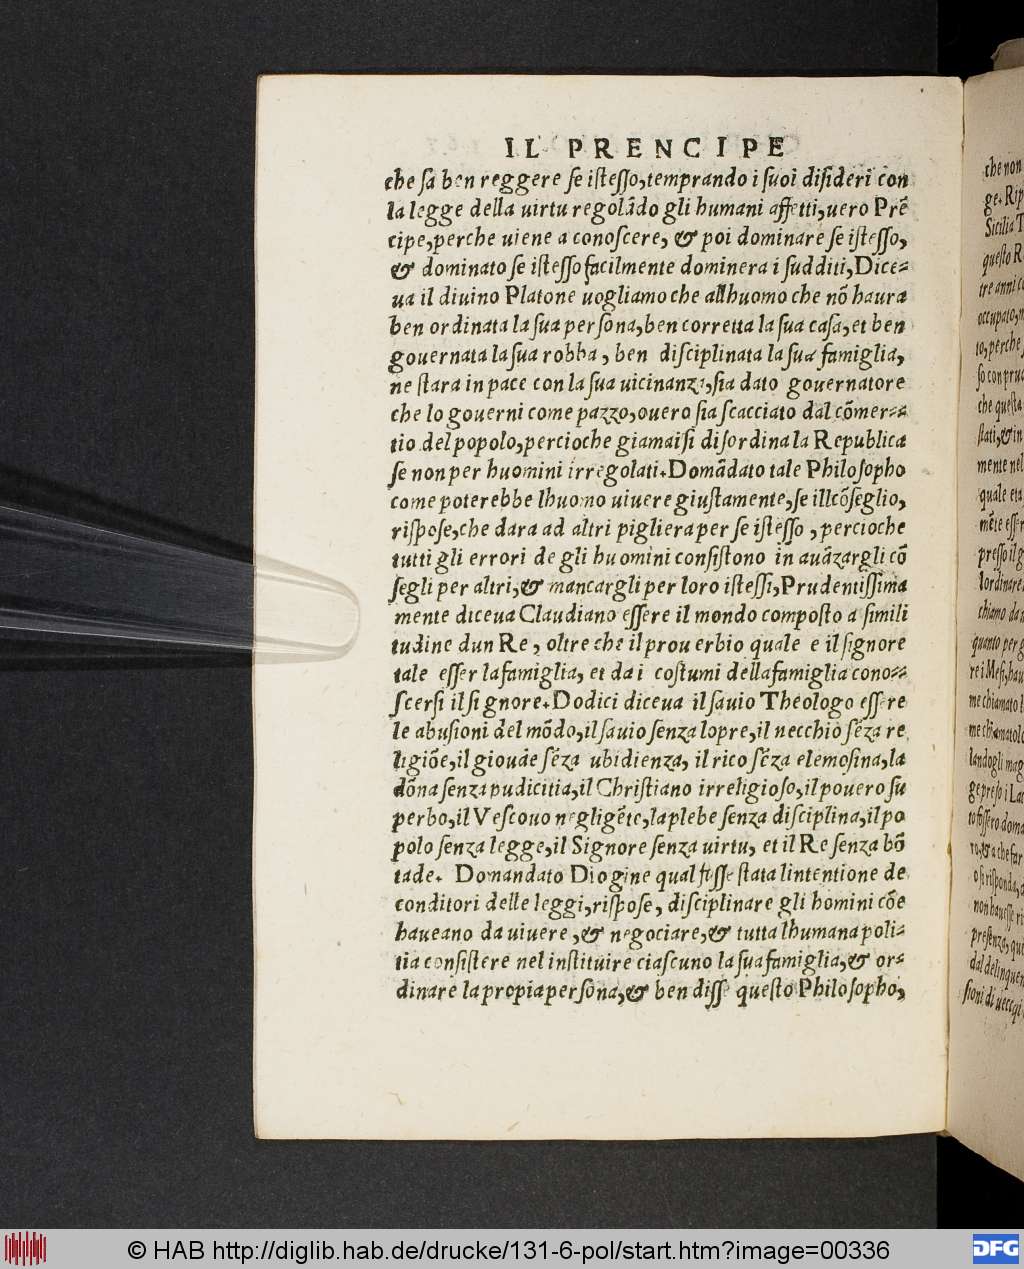 IL PRENCIPE
che sa ben reggere se istesso, temprando i suoi disideri con
la legge della uirtu regolādo gli humani affetti, uero Prē
cipe, perche uiene a conoscere, & poi dominare se istesso,
& dominato se istesso facilmente dominera i sudditi, Dice=
ua il diuino Platone uogliamo che allhuomo che nō haura
ben ordinata la sua persona, ben corretta la sua casa, et ben
gouernata la sua robba, ben disciplinata la sua famiglia,
ne stara in pace con la sua uicinanza, sia dato gouernatore
che lo gouerni come pazzo, ouero sia scacciato dal cōmer=
tio del popolo, percioche giamai si disordina la Republica
se non per huomini irregolati. Domādato tale Philosopho
come poterebbe lhuomo uiuere giustamente, se illcōseglio,
rispose, che dara ad altri pigliera per se istesso, percioche
tutti gli errori de gli huomini consistono in auāzargli cō
segli per altri, & mancargli per loro istessi, Prudentissima
mente diceua Claudiano essere il mondo composto a simili
tudine dun Re, oltre che il prouerbio quale e il signore
tale esser la famiglia, et da i costumi della famiglia cono=
scersi il signore. Dodici diceua il sauio Theologo essere
le abusioni del mōdo, il sauio senza lopre, il uecchio sēza re
ligiōe, il giouāe sēza ubidienza, il rico sēza elemosina, la
dōna senza pudicitia, il Christiano irreligioso, il pouero su
perbo, il Vescouo negligēte, la plebe senza disciplina, il po
polo senza legge, il Signore senza uirtu, et il Re senza bō
tade. Domandato Diogine qual fosse stata lintentione de
conditori delle leggi, rispose, disciplinare gli homini cōe
haueano da uiuere, & negociare, & tutta lhumana poli=
tia consistere nel instituire ciascuno la sua famiglia, & or=
dinare la propia persona, & ben disse questo Philosopho,
che non
ge. Rip
Sicilia T
questo R
tre anni co
occupato,
to, perche
so con prud
che questa
stati, & in
mente nel
quale eta
mēte esser
presso il g
lordinare
chiamo da
quanto per g
re i Mesi, hau
me chiamato l
me chiamato lo
landogli mag
ge preso i Lac
to fossero doma
ro, & a che far
o si risponda,
non hauesse ri
presenza, que
dal delinquen
sioni di
© HAB http://diglib.hab.de/drucke/131-6-pol/start.htm?image=00336
DFG